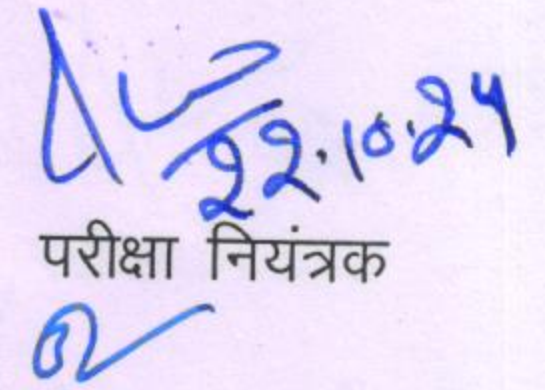 22.10.24
परीक्षा नियंत्रक